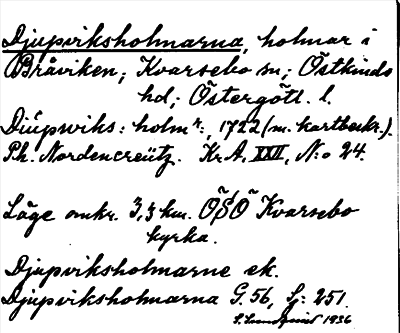 Djupviksholmarna, holmar i
Bråviken; Kvarsebo sn; Östkinds
hd; Östergötl. l.
Diüpwiks: holmr:, 1722 (m. kartbeskr.).
Ph. Nordencreütz. Kr.A. XXII, N:o 24.
Läge omkr. 3,3 km. ÖSÖ Kvarsebo
kyrka.
Djupviksholmarne ek.
Djupviksholmarna G. 56, Sj: 251.
1936